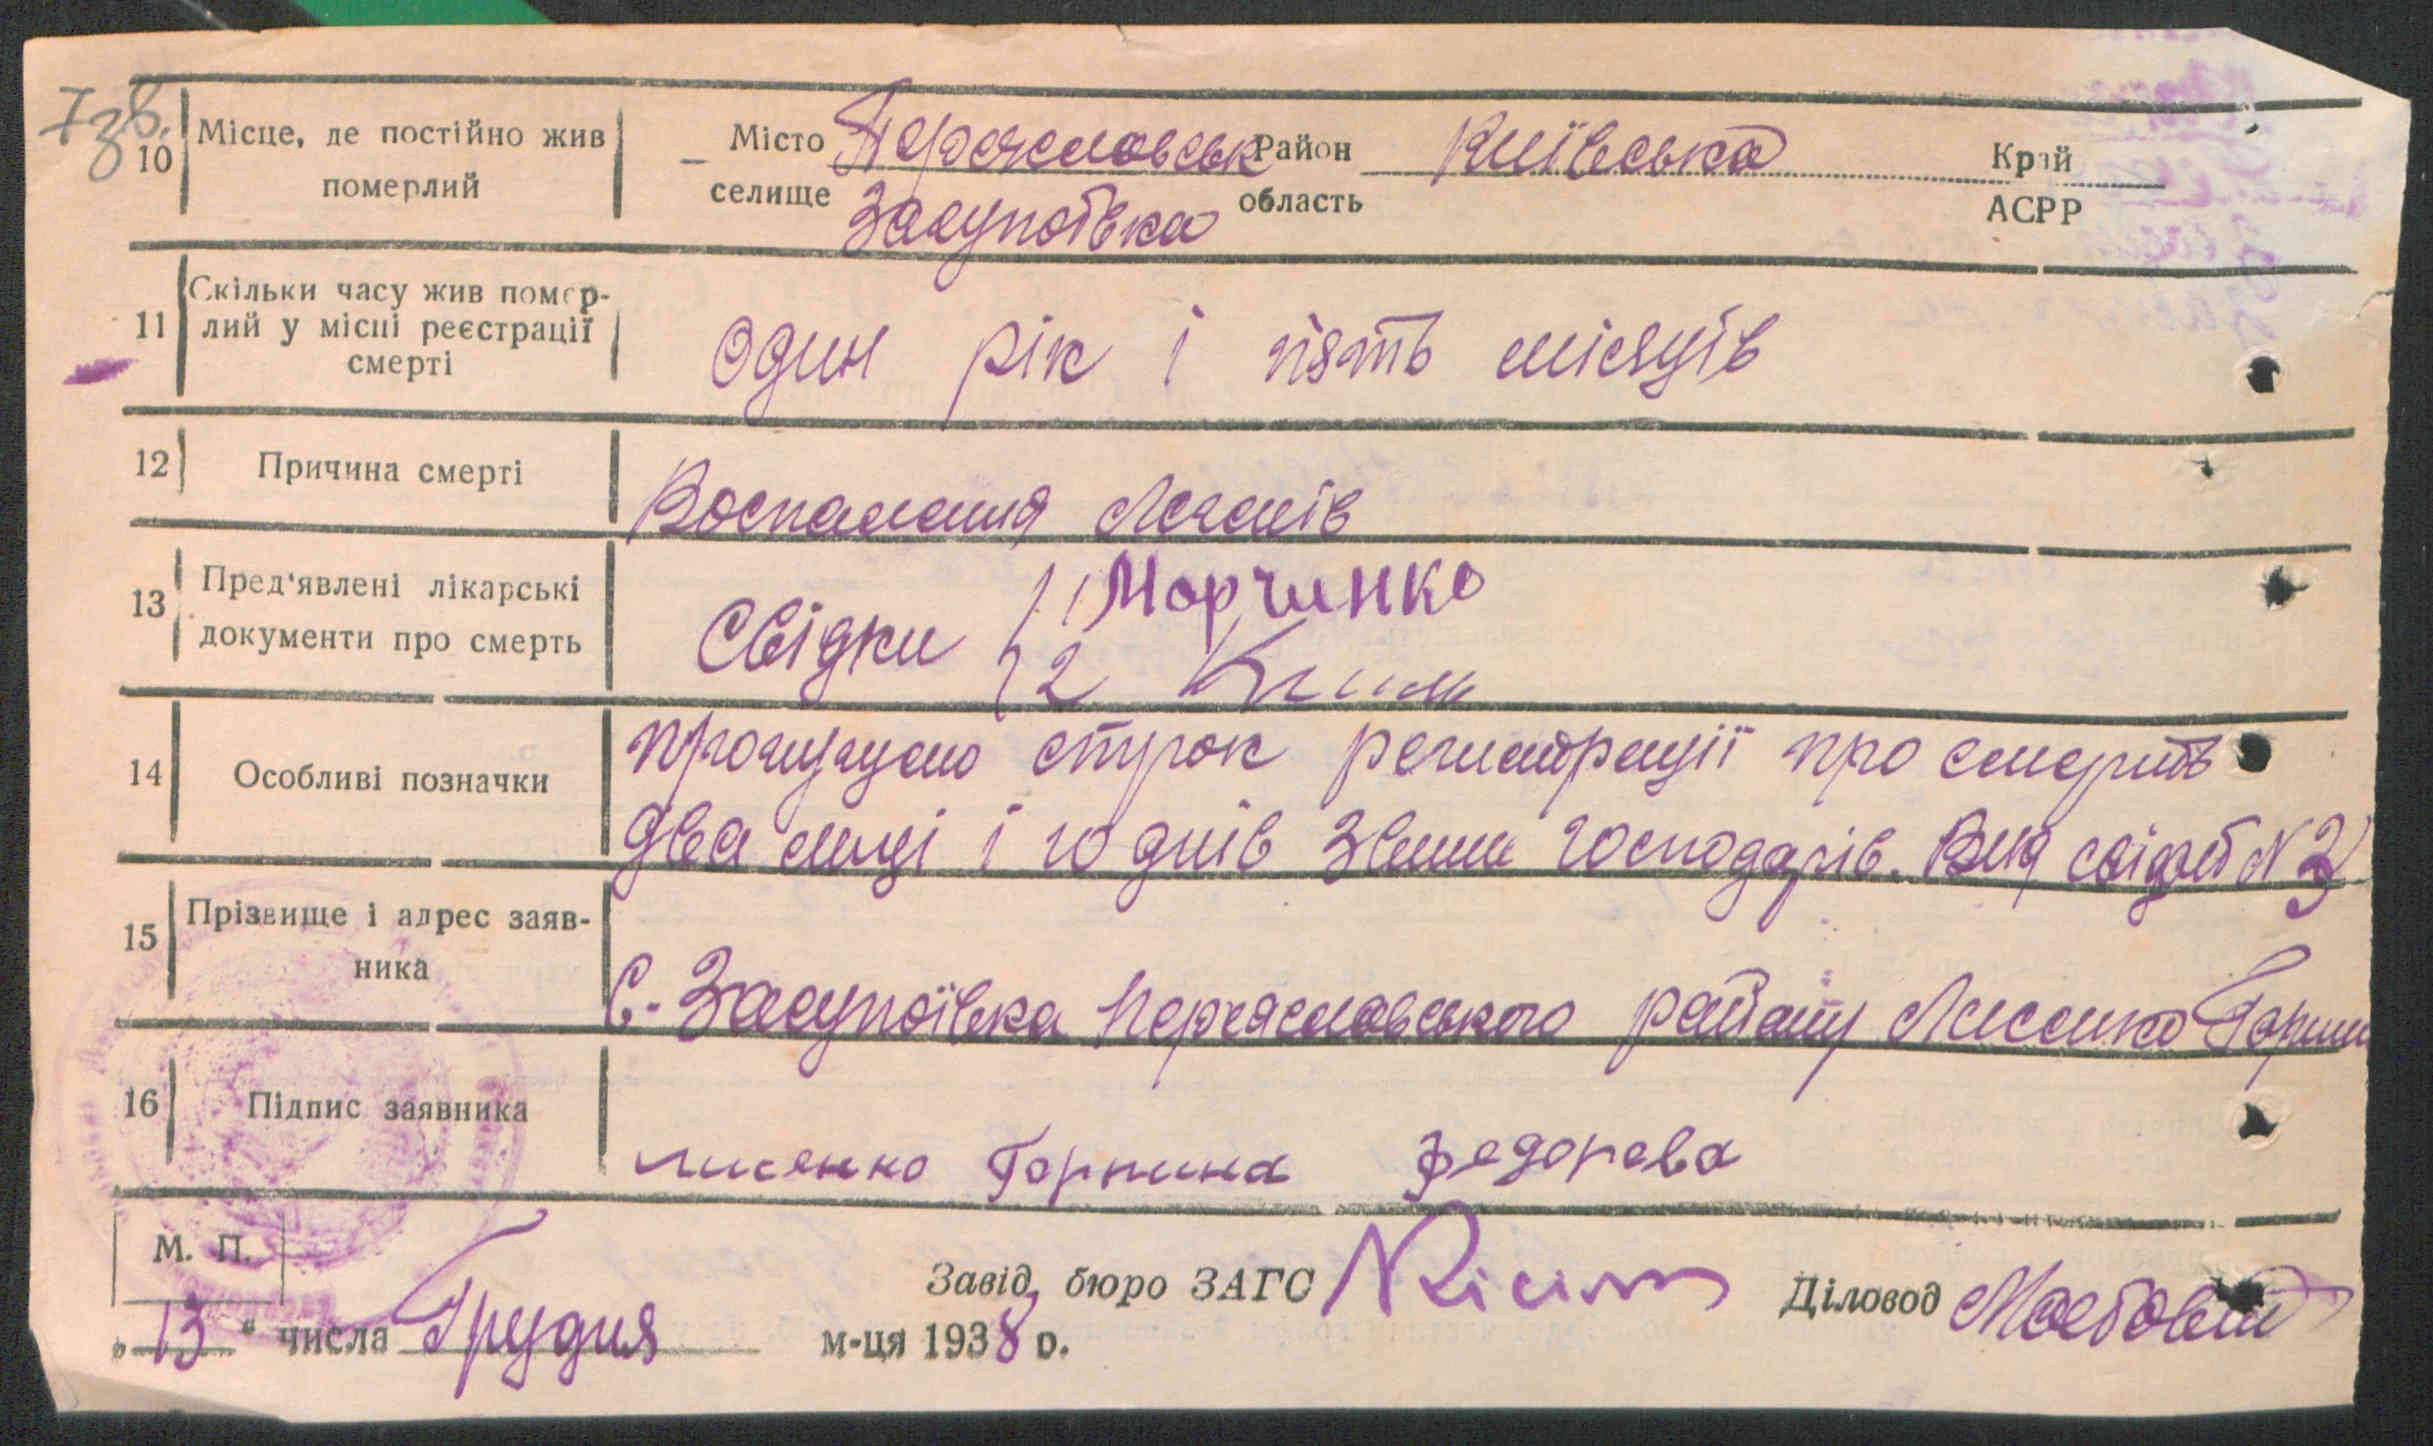 738.
10 Місце, де постійно жив Місто Переяславськ Район Київська Край
померлий селище Засупоївка область АСРР
11 Скільки часу жив помер-
лий у місці реєстрації
смерті
один рік і пять місяців
12 Причина смерті
Воспалення Легенів
13 Пред'явлені лікарські
документи про смерть
Свідки 1 Морчинко
2
14 Особливі позначки
пропущено строк регистрації про смерть
два місці і 10 днів з вини господарів. N 3
15 Прізвище і адрес заяв-
ника
С. Засупоївка Переяславського району Лисенко Горпин
16 Підпис заявника
лисенко Горпина Федорова
М. П.
Завід. бюро ЗАГС Діловод
„13“ числа Грудня м-ця 1938 р.